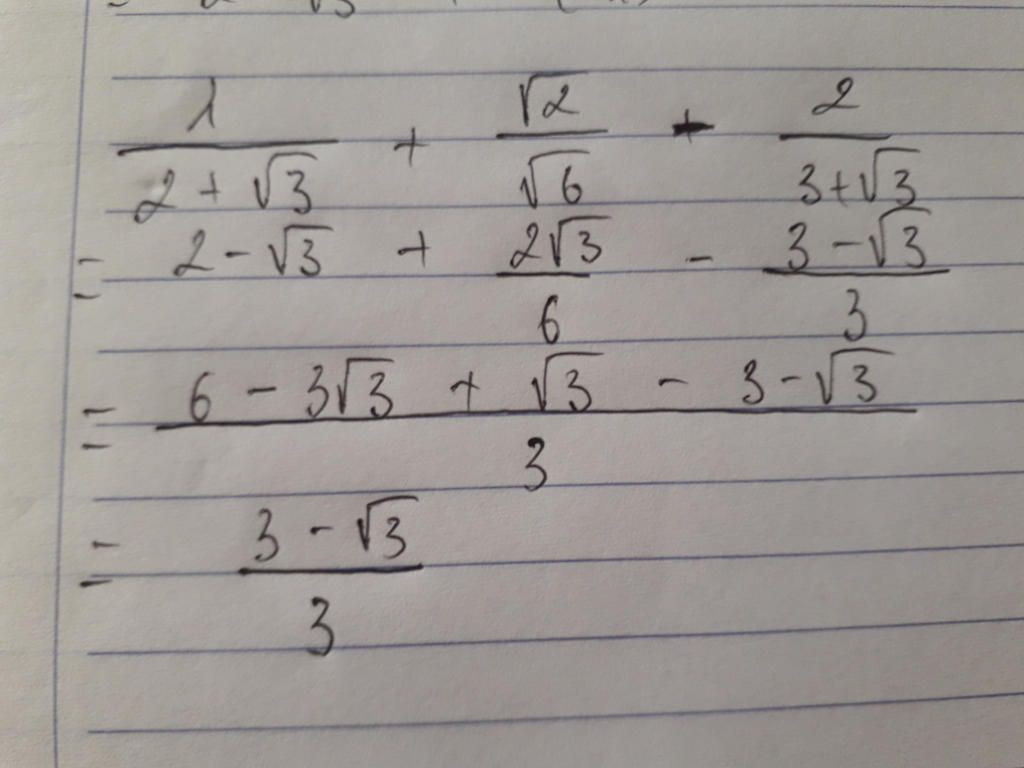 1/(2 + √3) + √2/√6 - 2/(3+√3)
= 2 - √3 + 2√3/6 - (3 - √3)/3
= (6 - 3√3 + √3 - 3 - √3)/3
= (3 - √3)/3